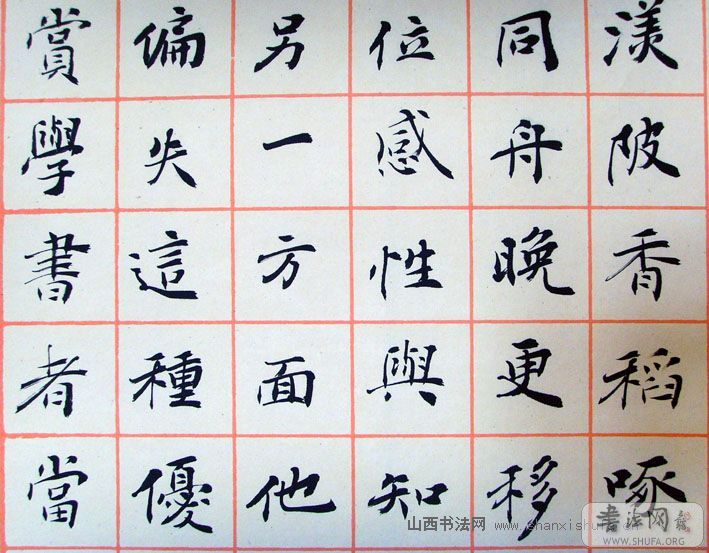 渼陂香稻啄
同舟晚更移
位感性與知
另一方面他
偏失這種優
賞學書者當
山西书法网 www.shanxishufa.com
书法网
WWW.SHUFA.ORG